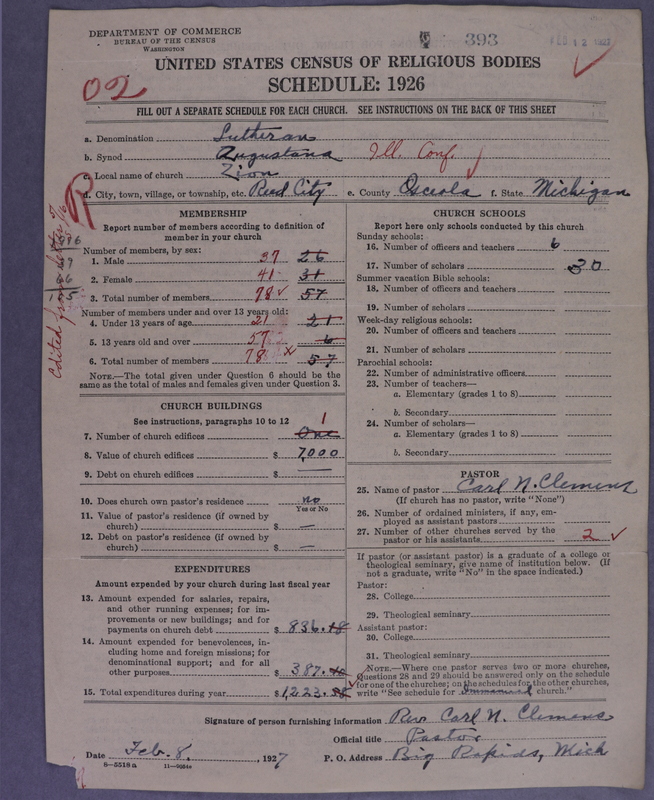 DEPARTMENT OF COMMERCE
BUREAU OF THE CENSUS
WASHINGTON
393
FEB 12 1927
UNITED STATES CENSUS OF RELIGIOUS BODIES
SCHEDULE: 1926
02
FILL OUT A SEPARATE SCHEDULE FOR EACH CHURCH. SEE INSTRUCTIONS ON THE BACK OF THIS SHEET
a. Denomination Lutheran
b. Synod Augustana Ill. Conf.
c. Local name of church Zion
d. City, town, village, or township, etc. Reed City e. County Osceola f. State Michigan
MEMBERSHIP
Report number of members according to definition of
member in your church
Number of members, by sex:
1. Male 37 26
2. Female 41 31
3. Total number of members 78 57
Number of members under and over 13 years old:
4. Under 13 years of age 21 21
5. 13 years old and over 57 6
6. Total number of members 78 57
NOTE.—The total given under Question 6 should be
same as the total of males and females given under Question 3.
CHURCH BUILDINGS
See instructions, paragraphs 10 to 12 1
7. Number of church edifices One
8. Value of church edifices $ 7,000
9. Debt on church edifices $ —
10. Does church own pastor's residence no
Yes or No
11. Value of pastor's residence (if owned by
church) $ —
12. Debt on pastor's residence (if owned by
church) $ —
EXPENDITURES
Amount expended by your church during last fiscal year
13. Amount expended for salaries, repairs,
and other running expenses; for im-
provements or new buildings; and for
payments on church debt $ 836.18
14. Amount expended for benevolences, in-
cluding home and foreign missions; for
denominational support; and for all
other purposes $ 387.
15. Total expenditures during year $ 1,223.
CHURCH SCHOOLS
Report here only schools conducted by this church
Sunday schools:
16. Number of officers and teachers 6
17. Number of scholars 30
Summer vacation Bible schools:
18. Number of officers and teachers
19. Number of scholars
Week-day religious schools:
20. Number of officers and teachers
21. Number of scholars
Parochial schools:
22. Number of administrative officers
23. Number of teachers—
a. Elementary (grades 1 to 8)
b. Secondary
24. Number of scholars—
a. Elementary (grades 1 to 8)
b. Secondary
PASTOR
25. Name of pastor Carl N. Clemens
(If church has no pastor, write "None")
26. Number of ordained ministers, if any, em-
ployed as assistant pastors
27. Number of other churches served by the
pastor or his assistants 2
If pastor (or assistant pastor) is a graduate of a college or
theological seminary, give name of institution below. (If
not a graduate, write "No" in the space indicated.)
Pastor:
28. College
29. Theological seminary
Assistant pastor:
30. College
31. Theological seminary
NOTE.—Where one pastor serves two or more churches,
Questions 28 and 29 should be answered only on the schedule
for one of the churches; on the schedules for the other churches,
write "See schedule for Immanuel church."
Signature of person furnishing information Rev Carl N. Clemens
Official title Pastor
Date Feb. 8, 1927 P. O. Address Big Rapids, Mich
8—5518a